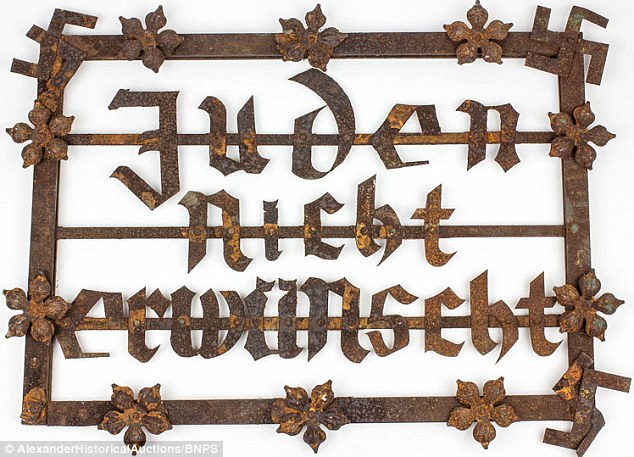 Juden
nicht
erwünscht
© AlexanderHistoricalAuctions/BNPS